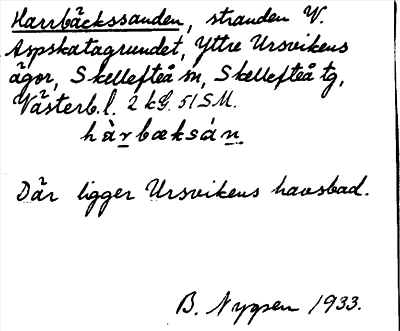 Harrbäckssanden, stranden V.
Aspskatagrundet, Yttre Ursvikens
ägor, Skellefteå sn, Skellefteå tg,
Västerb. l. 2 kG. 51 S M.
hàrbæksán
Där ligger Ursvikens havsbad.
B. Nygren 1933.